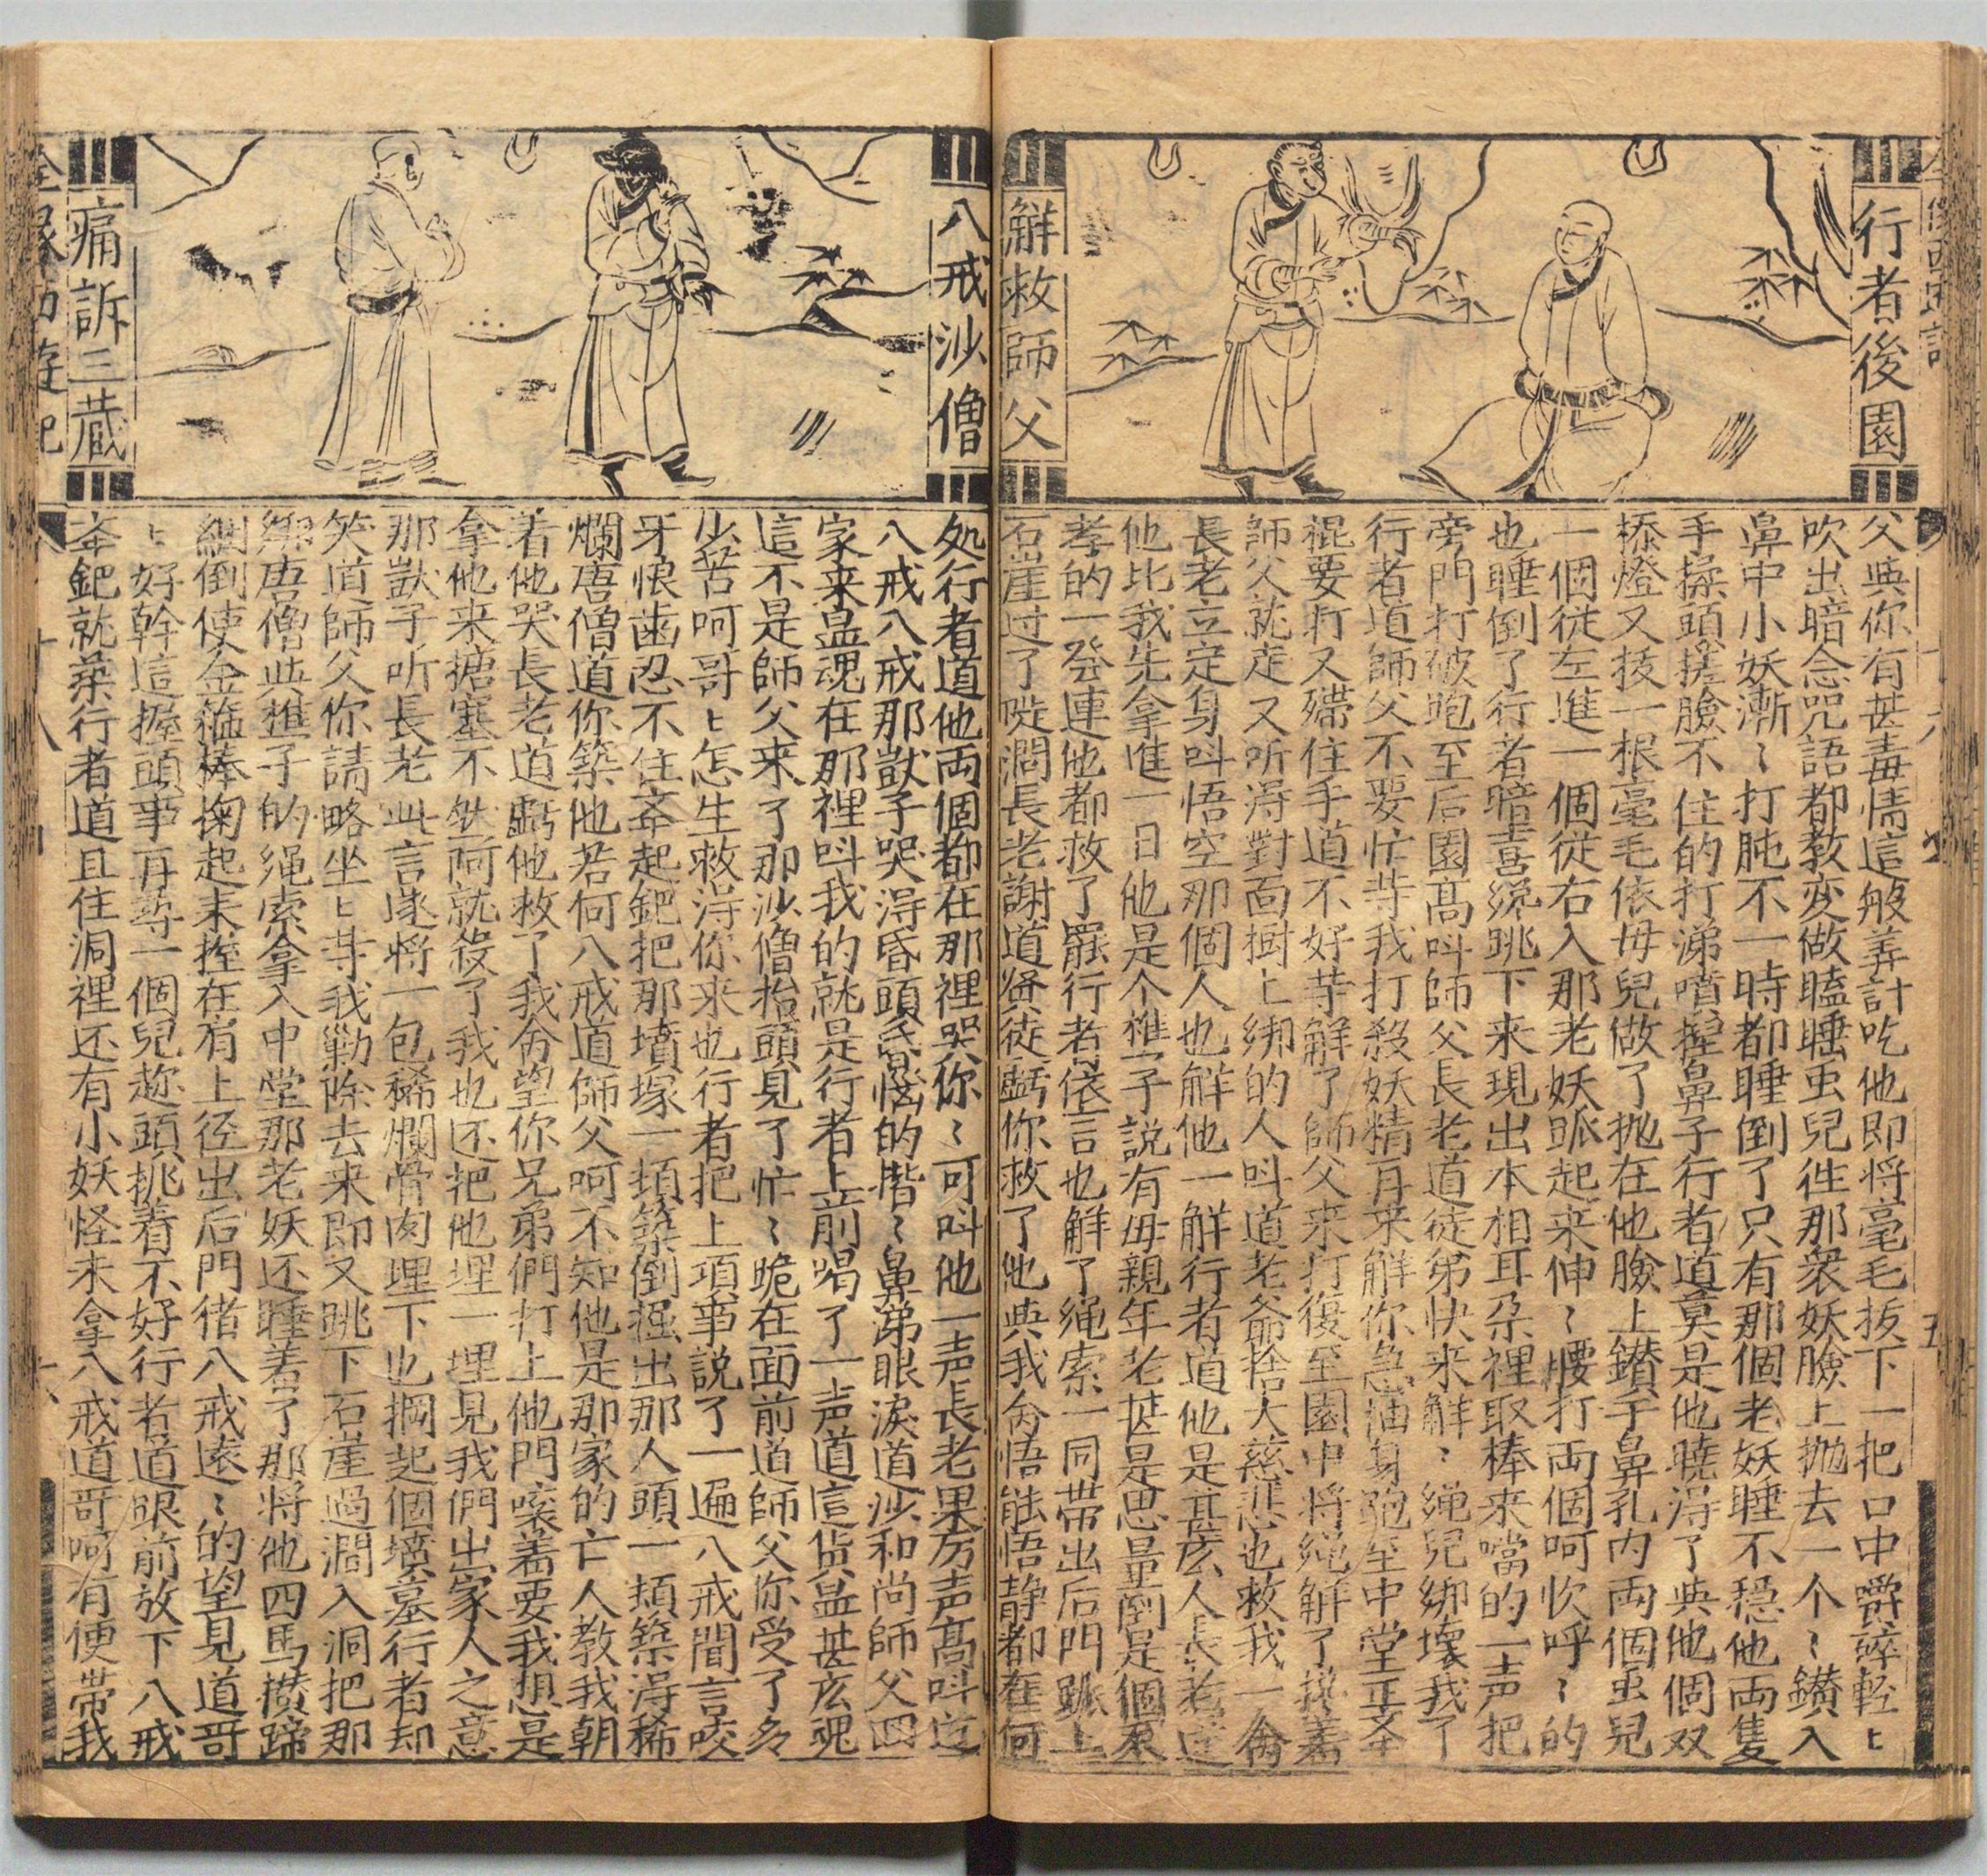 行者後園
解救師父
父與你有甚毒情這般美計吃他即将毫毛拔下一把口中嚼碎輕〻
吹出暗念咒語都教変做瞌睡虫兒徃那衆妖臉上抛去一个〻鑚入
鼻中小妖漸〻打盹不一時都睡倒了只有那個老妖睡不穏他両隻
手揉頭搓臉不住的打涕噴揑鼻子行者道莫是他曉淂了與他個双
㮇燈又拔一根毫毛依毋兒做了抛在他臉上鑚于鼻孔内両個虫兒
一個従左進一個従右入那老妖𧿼起来伸〻腰打両個呵吹呼〻的
也睡倒了行者暗喜絶跳下来現出本相耳朶裡取棒来噹的一声把
旁門打破跑至后園髙呌師父長老道徒弟快来解〻绳兒綁壊我了
行者道師父不要忙等我打殺妖精再来解你急抽身跑至中堂正𡘋
棍要打又𣻉住手道不好等解了師父来打復至園中将绳解了挽着
師父就走又听淂對面樹上綁的人呌道老爺捨大慈悲也救我一命
長老立定身呌悟空那個人也解他一解行者道他是甚庅人長老道
他比我先拿進一日他是个樵子説有毋親年老甚是思量倒是個尽
孝的一發連他都救了罷行者依言也解了绳索一同带出后門𧿼上
石崖过了陡澗長老謝道賢徒虧你救了他與我命悟能悟静都在何
八戒沙僧
痛訴三藏
処行者道他両個都在那裡哭你〻可呌他一声長老果厉声髙呌道
八戒八戒那獃子哭淂昏頭昏惱的揩〻鼻涕眼淚道沙和尚師父囬
家来显魂在那裡呌我的就是行者上前喝了一声道這貨显甚庅魂
這不是師父来了那沙僧抬頭見了忙〻跪在面前道師父你受了多
少苦呵哥〻怎生救淂你来也行者把上項事説了一遍八戒聞言咬
牙恨歯忍不住𡘋起鈀把那墳塚一頓築倒掘出那人頭一頓築淂稀
爛唐僧道你築他若何八戒道師父呵不知他是那家的亡人教我朝
着他哭長老道虧他救了我命望你兄弟們打上他門嚷着要我想是
拿他来搪塞不然阿就殺了我也还把他埋一埋見我們出家人之意
那獃子听長老此言遂将一包稀爛骨肉埋下也搁起個墳墓行者却
笑道師父你請略坐〻等我勦除去来即又跳下石崖過澗入洞把那
綁唐僧與樵子的绳索拿入中堂那老妖还睡着了那将他四馬攅蹄
綑倒使金箍棒掬起来握在肩上径出后門猪八戒逺〻的望見道哥
〻好幹這握頭事再尋一個兒趂頭挑着不好行者道眼前放下八戒
𡘋鈀就築行者道且住洞裡还有小妖怪未拿八戒道哥呵有便帶我